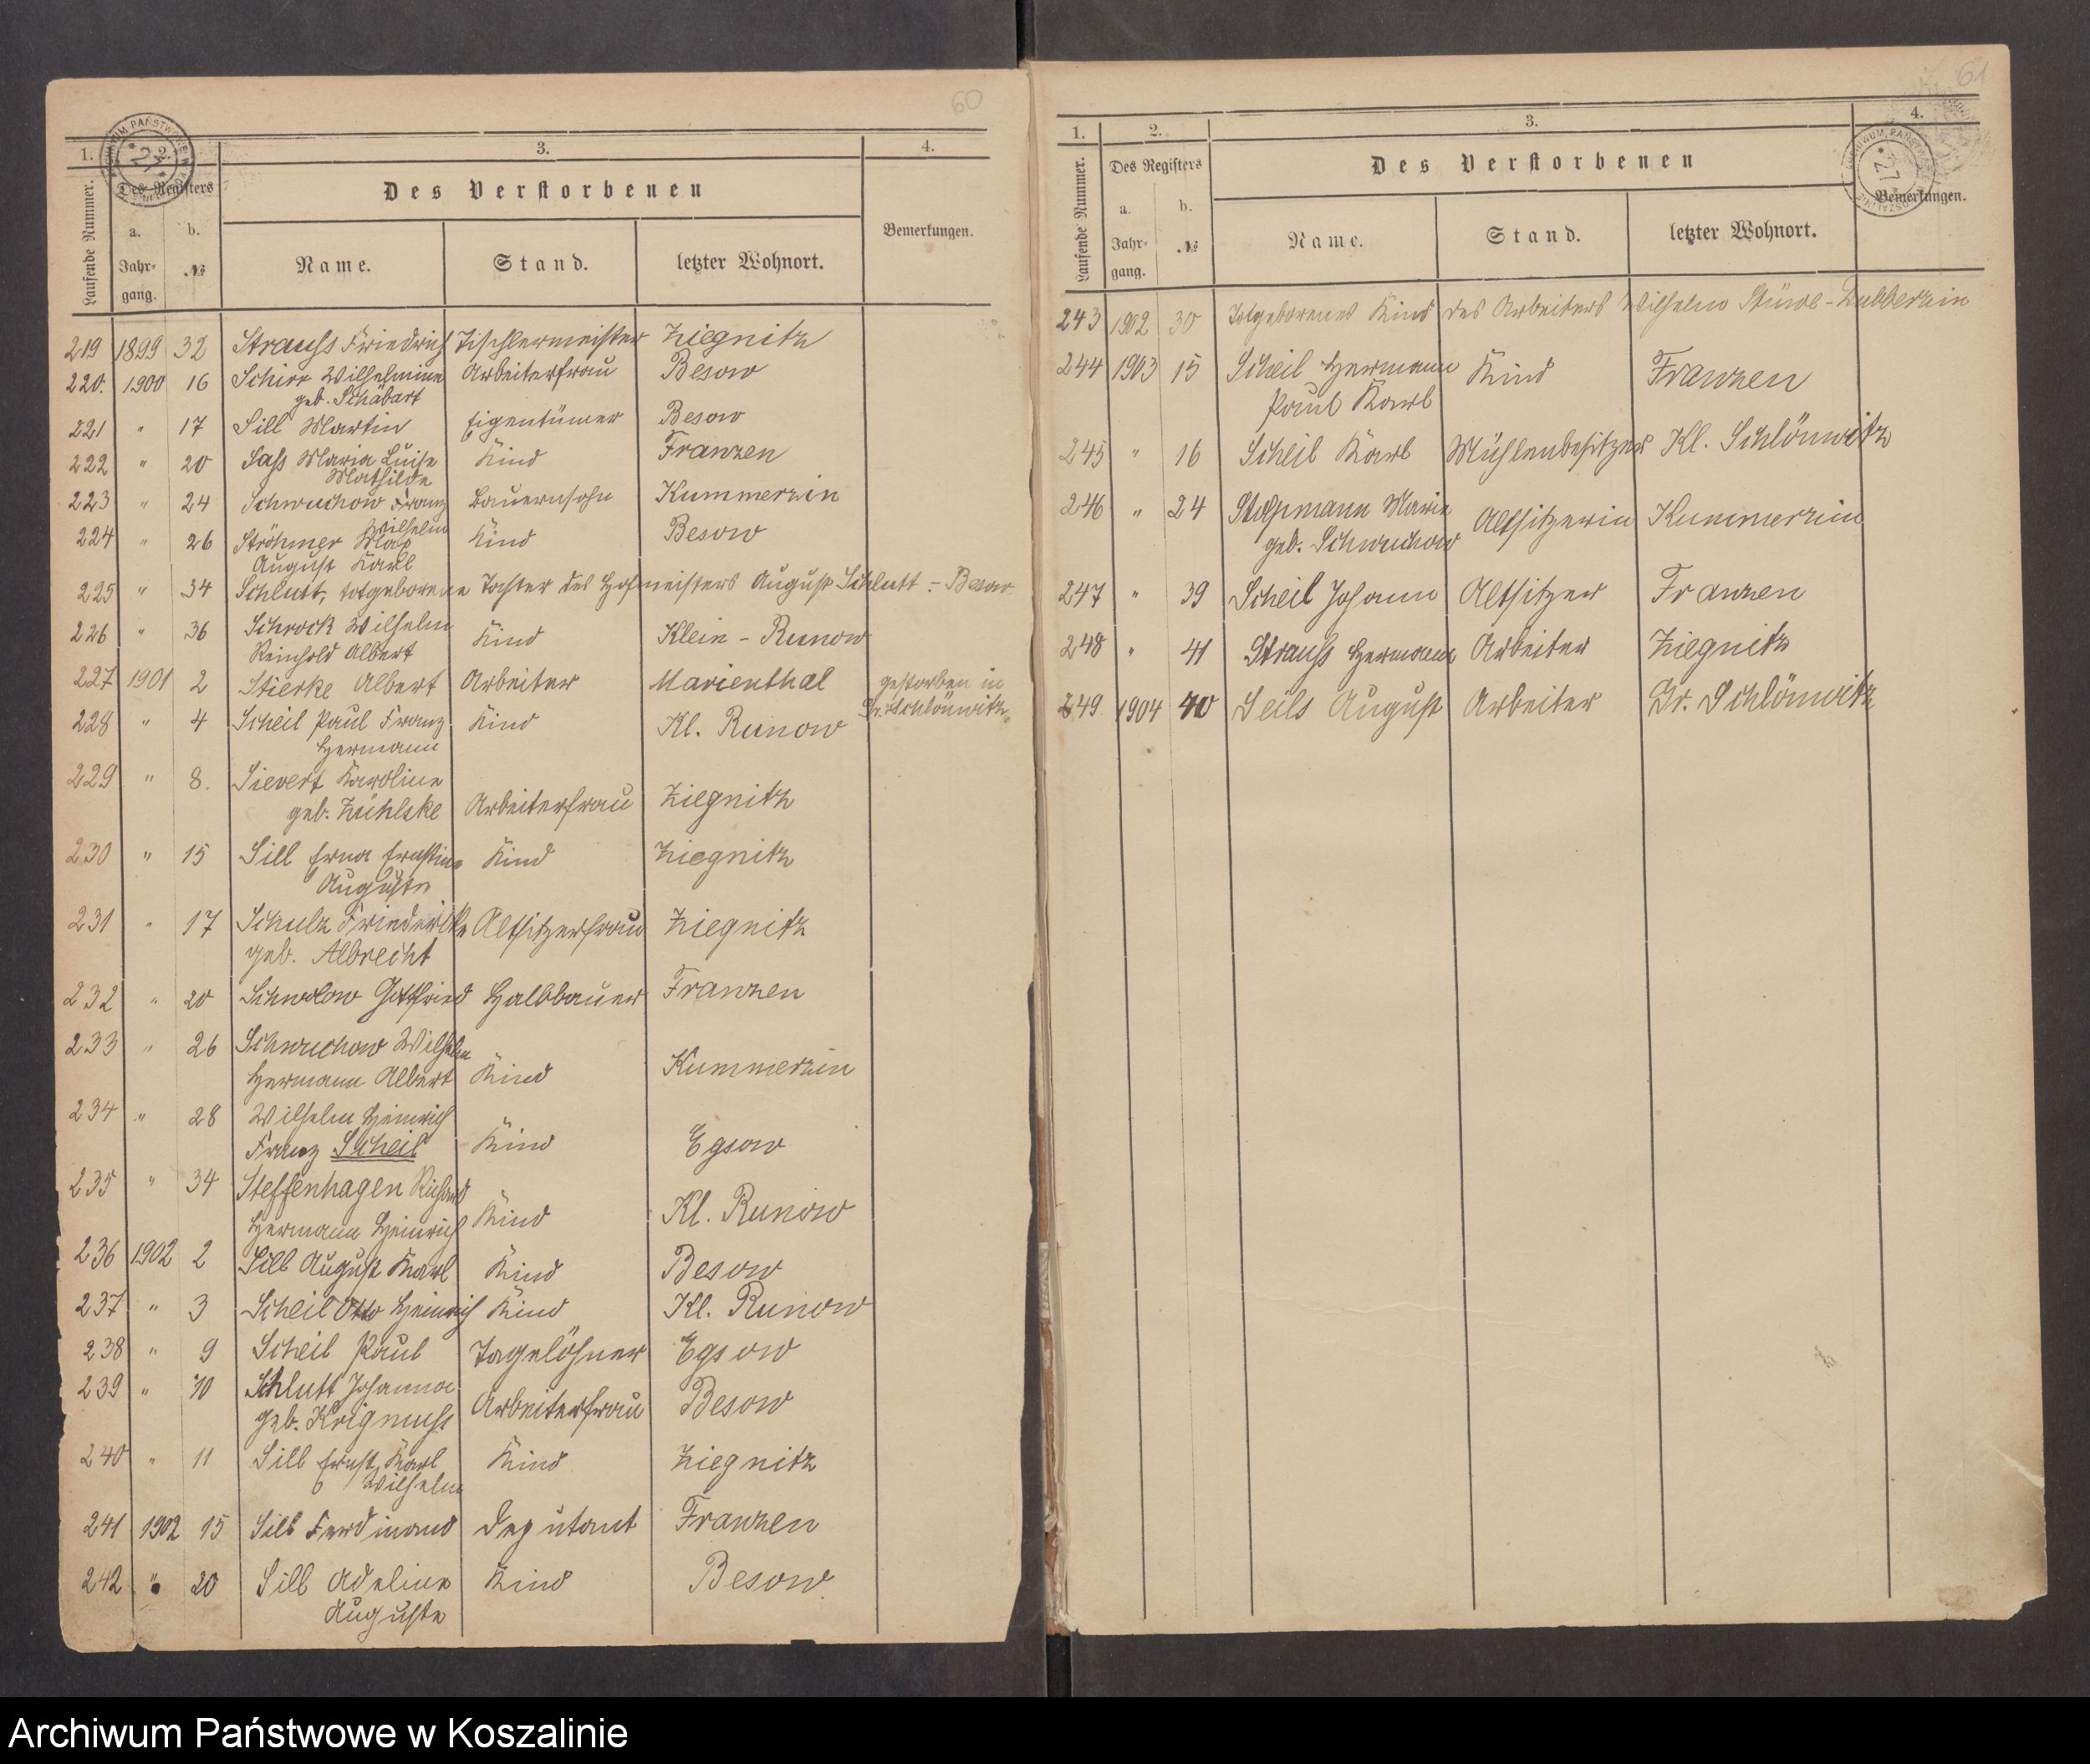 60
1. 2. 3. 4.
Laufende Nummer. Des Registers Des Verstorbenen Bemerkungen.
a. b.
Jahr- № Name. Stand. letzter Wohnort.
gang.
219 1899 32 Strauss Friedrich Tischlermeister Ziegnitz
220. 1900 16 Schirr Wilhelmine Arbeiterfrau Besow
geb. Schabart
221 " 17 Sill Martin Eigentümer Besow
222 " 20 Sass Maria Luise Kind Franzen
Mathilde
223 " 24 Schwuchow Franz Bauernsohn Kummerzin
Wilhelm
224 " 26 Ströhmer Max Kind Besow
August Karl
225 " 34 Schlutt, totgeborene Tochter des Hofmeisters August Schlutt - Besow.
226 " 36 Schrock Wilhelm Kind Klein-Runow
Reinhold Albert
227 1901 2 Stierke Albert Arbeiter Marienthal gestorben in
Gr. Schlönwitz.
228 " 4 Scheil Paul Franz Kind Kl. Runow
Hermann
229 " 8. Sievert Karoline
geb. Zühlske Arbeiterfrau Ziegnitz
230 " 15 Sill Erna Ernstine Kind Ziegnitz
Auguste
231 " 17 Schulz Friederike Altsitzerfrau Ziegnitz
geb. Albrecht
232 " 20 Schwolow Gottfried Halbbauer Franzen
233 " 26 Schwuchow Wilhelm
Hermann Albert Kind Kummerzin
234 " 28 Wilhelm Heinrich
Franz Scheil Kind Egsow
235 " 34 Steffenhagen Richard
Hermann Heinrich Kind Kl. Runow
236 1902 2 Sill August Karl Kind Besow
237 " 3 Scheil Otto Heinrich Kind Kl. Runow
238 " 9 Scheil Paul Tagelöhner Egsow
239 " 10 Schlutt Johanna
geb. Krignuss Arbeiterfrau Besow
240 " 11 Sill Ernst Karl Kind Ziegnitz
Wilhelm
241 1902 15 Sill Ferdinand Deputant Franzen
242 " 20 Sill Adeline Kind Besow
Auguste
61
1. 2. 3. 4.
Laufende Nummer. Des Registers Des Verstorbenen Bemerkungen.
a. b.
Jahr- № Name. Stand. letzter Wohnort.
gang.
243 1902 30 Totgeborenes Kind des Arbeiters Wilhelm Stüwe - Dubberzin
244 1903 15 Scheil Hermann Kind Franzen
Paul Karl
245 " 16 Scheil Karl Mühlenbesitzer Kl. Schlönwitz
246 " 24 Stolpmann Marie Altsitzerin Kummerzin
geb. Schwuchow
247 " 39 Scheil Johann Altsitzer Franzen
248 " 41 Strauss Hermann Arbeiter Ziegnitz
249 1904 40 Seils August Arbeiter Gr. Schlönwitz
Archiwum Państwowe w Koszalinie